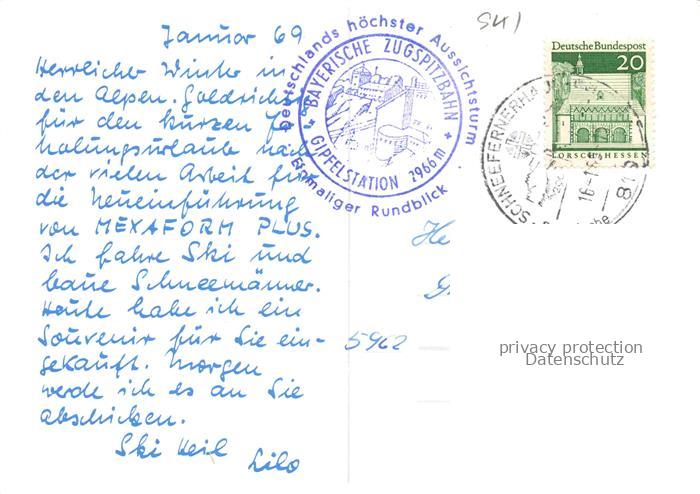 Januar 69
Herrlicher Winter in
den Alpen. Goldrichtig
für den kurzen
holungsurlaub nach
der vielen Arbeit für
die Neueinführung
von MEXAFORM PLUS.
Ich fahre Ski und
baue Schneemänner.
Heute habe ich ein
Souvenir für Sie ein-
gekauft. Morgen
werde ich es an Sie
abschicken.
Ski Heil
Lilo
Deutschlands höchster Aussichtsturm
BAYERISCHE ZUGSPITZBAHN
GIPFELSTATION 2966 m
Einmaliger Rundblick
SKI
Deutsche Bundespost
20
LORSCH/HESSEN
SCHNEEFERNERHAUS
He
5962
privacy protection
Datenschutz